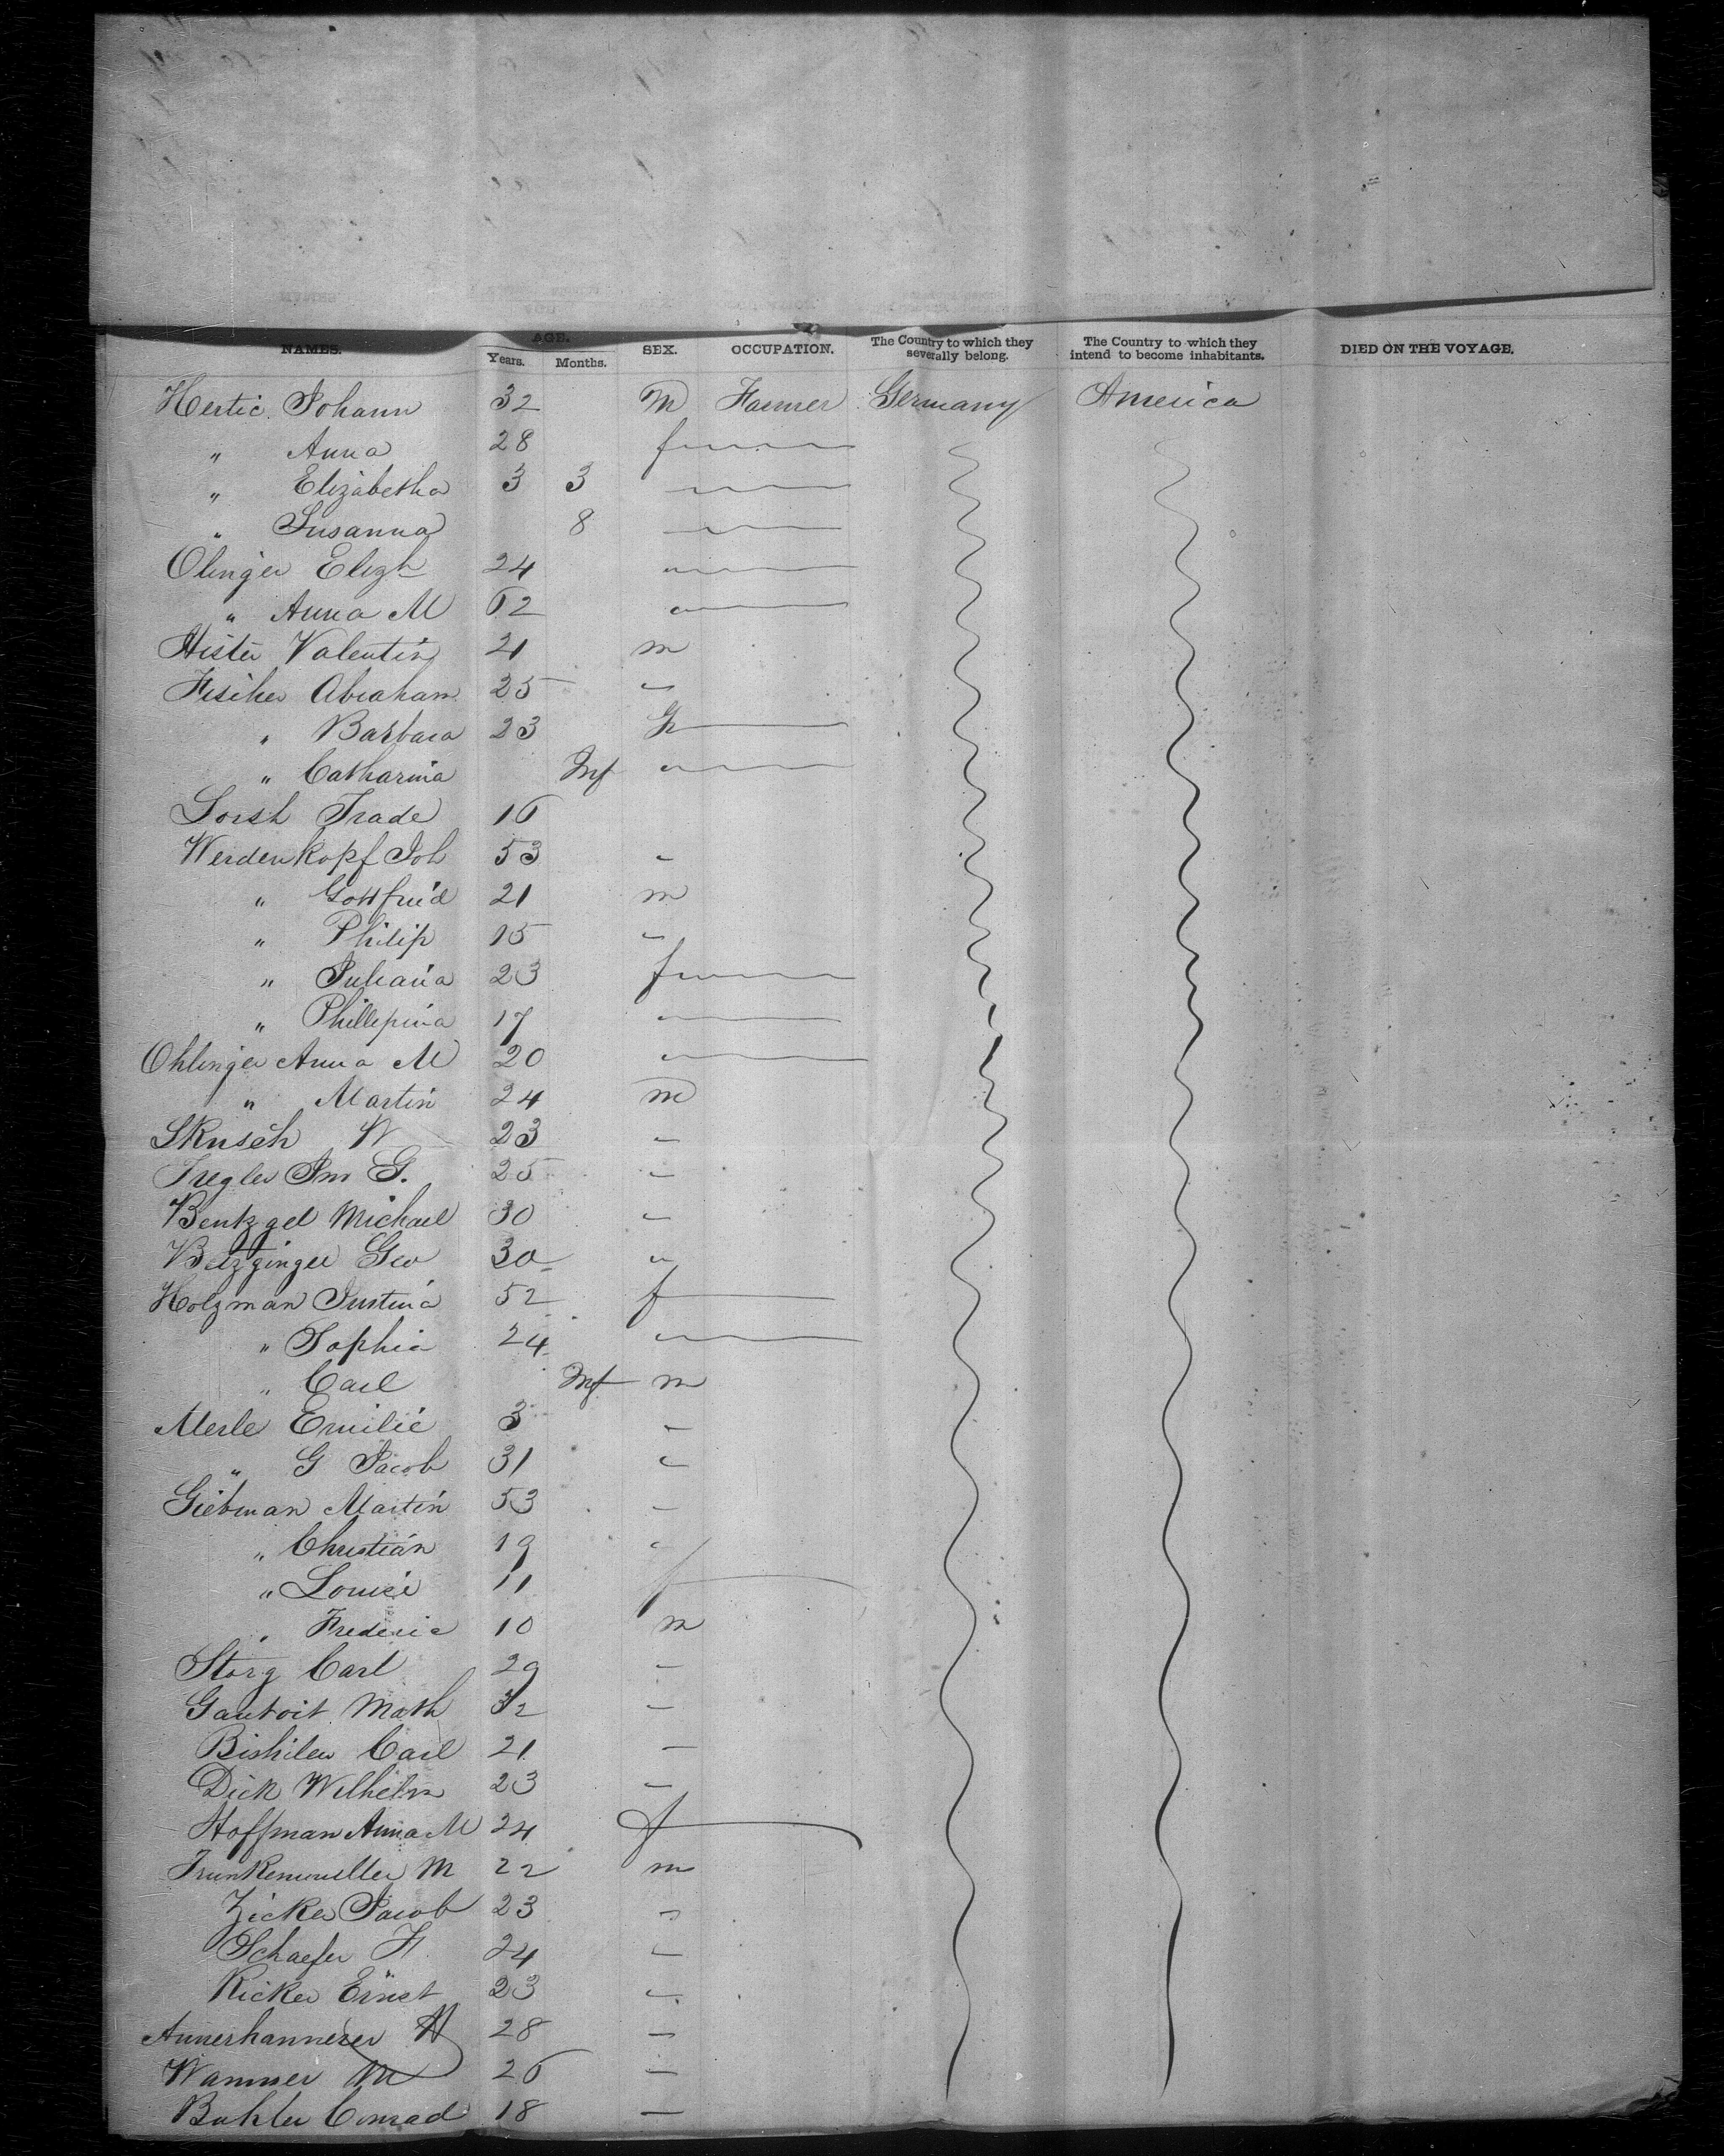 NAMES. AGE. Years. Months. SEX. OCCUPATION. The Country to which they severally belong. The Country to which they intend to become inhabitants. DIED ON THE VOYAGE.
Hertic Johann 32 M Farmer Germany America
" Anna 28 f
" Elizabetha 3 3
" Susanna 8
Olinger Elizh 24
" Anna M 62
Hister Valentin 21 m
Fischer Abraham 25
" Barbara 23
" Catharina Inf
Lorsh Trade 16
Werdenkopf Joh 53
" Gottfried 21 m
" Philip 15
" Juliana 23 f
" Phillepina 17
Ohlinger Anna M 20
" Martin 24 m
W 23
G. 25
Bentzgel Michael 30
Betzginger Geo 30
Holzman Justina 52 f
" Sophia 24
" Carl Inf m
Merle Emilie 3
" G Jacob 31
Giebman Martin 53
" Christian 19
" Louise 11 f
" Frederic 10 m
Storg Carl 29
Math 32
Carl 21
Dick Wilhelm 23
Hoffman Anna M 24 f
Trunkenmueller M 22 m
Zicker Jacob 23
Schaefer F. 24
Ricker Ernst 23
28
Wammer M 26
Buhler Conrad 18